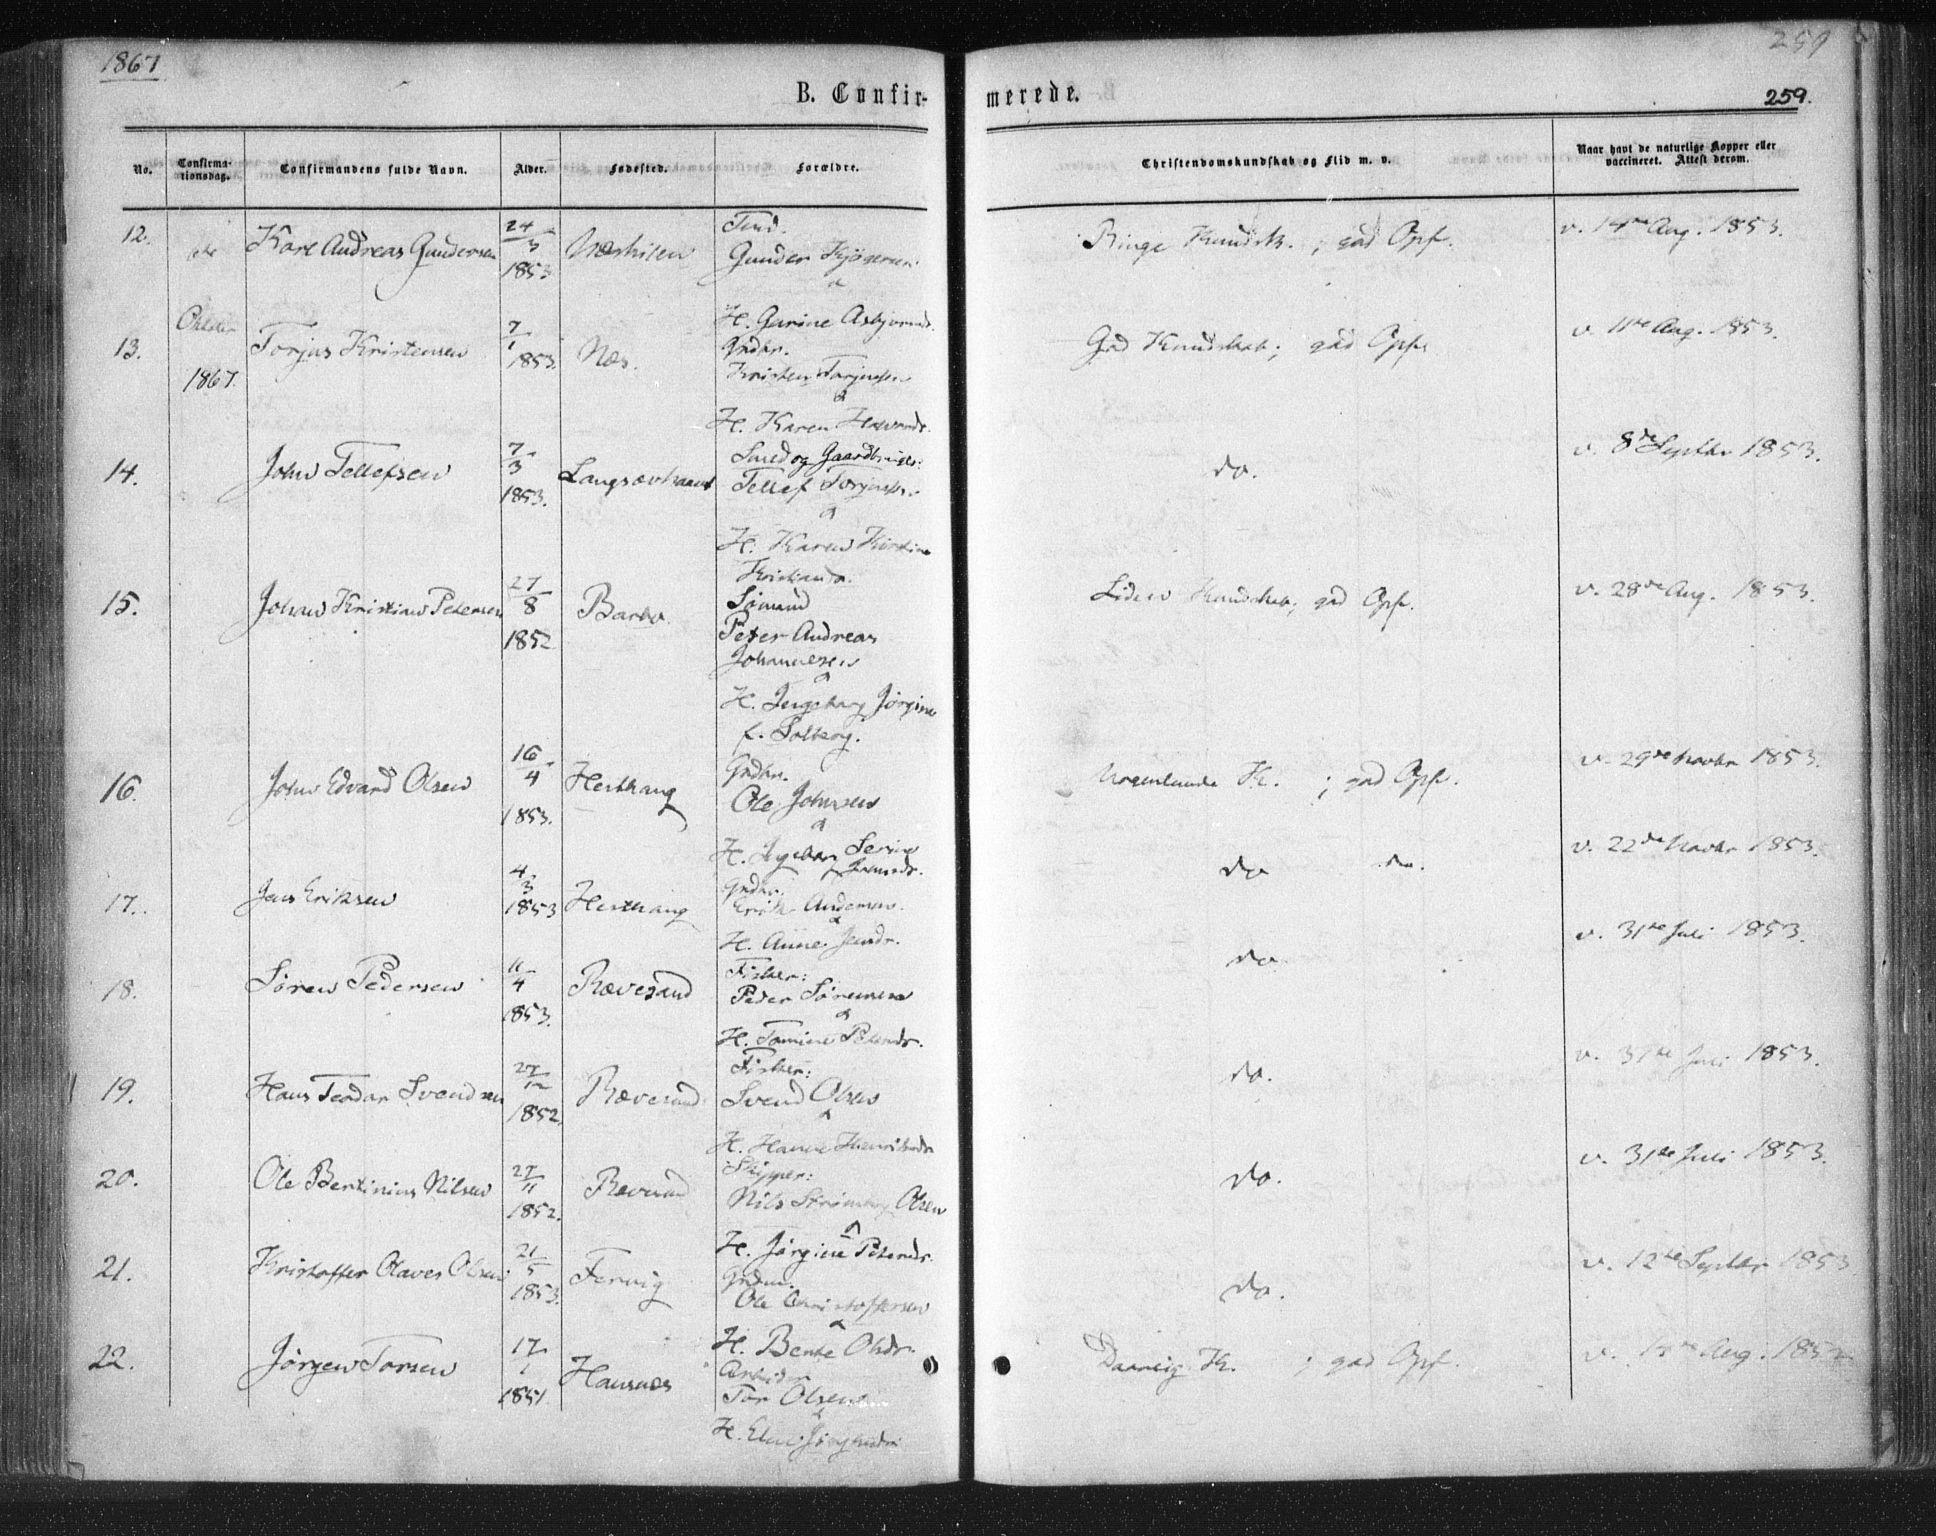 1867
259
B. Confir-
merede.
259.
No.
Confirma-
tionsdag.
Confirmandens fulde Navn.
Alder.
Fødested.
Forældre.
Christendomskundskab og Flid m. v.
Naar havt de naturlige Kopper eller
vaccineret. Attest derom.
12. Karl Andreas Gundersen 24/3 1853
Gunder
H. Gurine Asbjørnsd.
Kundsk. ; god Opf.
v. 14de Aug. 1853.
Oktober
1867.
13. Torjus Kristensen 7/1 1853. Næs.
Grdbr.
Kristen Torjussen
&
H. Karen
God Kundskab; god Opf.
v. 11te Aug. 1853.
14. John Tellefsen 7/3 1853.
Smed og Gaardbruger:
Tellef Torjussen
&
H. Karen Kirstine
Kristiansd.
do.
v. 8de Septbr 1853.
15. Johan Kristian Petersen 27/8 1852 Barbo.
Sømand
Peter Andreas
Johannesen
&
H. Ingeborg Jørgine
f. Solberg.
Liden Kundskab; god Opf.
v. 28de Aug. 1853.
16. John Edvard Olsen 16/4 1853. Hesthag
Grdbr.
Ole Johnsen
&
H. Ingebor Serine
Nogenlunde K. ; god Opf.
v. 29de Novbr 1853.
17. Jens Eriksen 4/3 1853 Hesthag
Grdbr.
Erik Andersen.
&
H. Anne Jensdr.
do do.
v. 22de Novbr 1853.
18. Søren Pedersen 11/4 1853. Rævesand
Fisker:
Peder Sørensen
&
H. Tomine Petersdr.
do
v. 31te Juli 1853.
19. Hans Teodor Svendsen 27/12 1852. Rævesand
Fisker:
Svend Olsen
&
H. Hanne Henriksdr
do.
v. 31te Juli 1853.
20. Ole Bertinius Nilsen 27/11 1852. Rævesand
Skipper:
Nils Strømberg Olsen
&
H. Jørgine Petersdr.
do.
v. 31te Juli 1853.
21. Kristoffer Olaves Olsen 21/5 1853. Fervig
Grdbr.
Ole Christoffersen
&
H. Bente Olsdr.
do.
v. 12te Septbr 1853
22. Jørgen Torsen 17/1 1851. Hausnæs
Arbeider
Tor Olsen
&
H.
Daarlig K. ; god Opf.
v. Aug. 1852